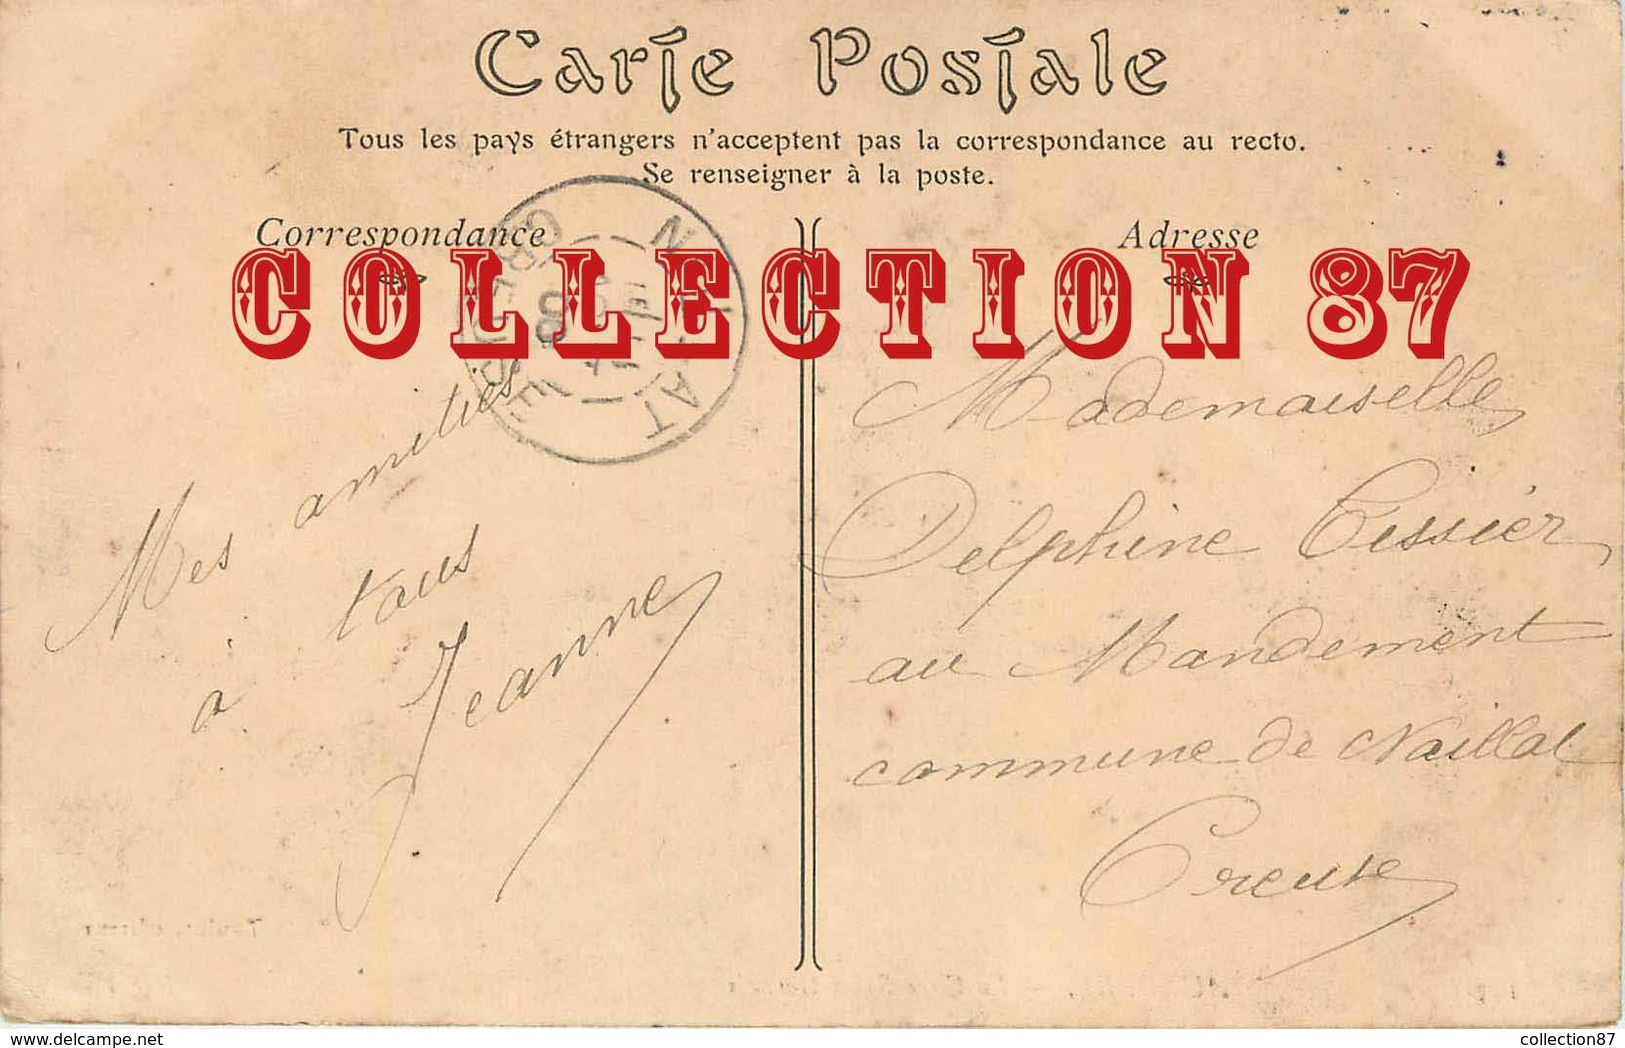 Carte Postale
Tous les pays étrangers n'acceptent pas la correspondance au recto.
Se renseigner à la poste.
Correspondance
Adresse
COLLECTION 87
NAILLAT
CREUSE
08
Mes amitiés
à tous
Jeanne
Mademoiselle
Delphine Tessier
au Mandement
commune de Naillat
Creuse
www.delcampe.net
collection87